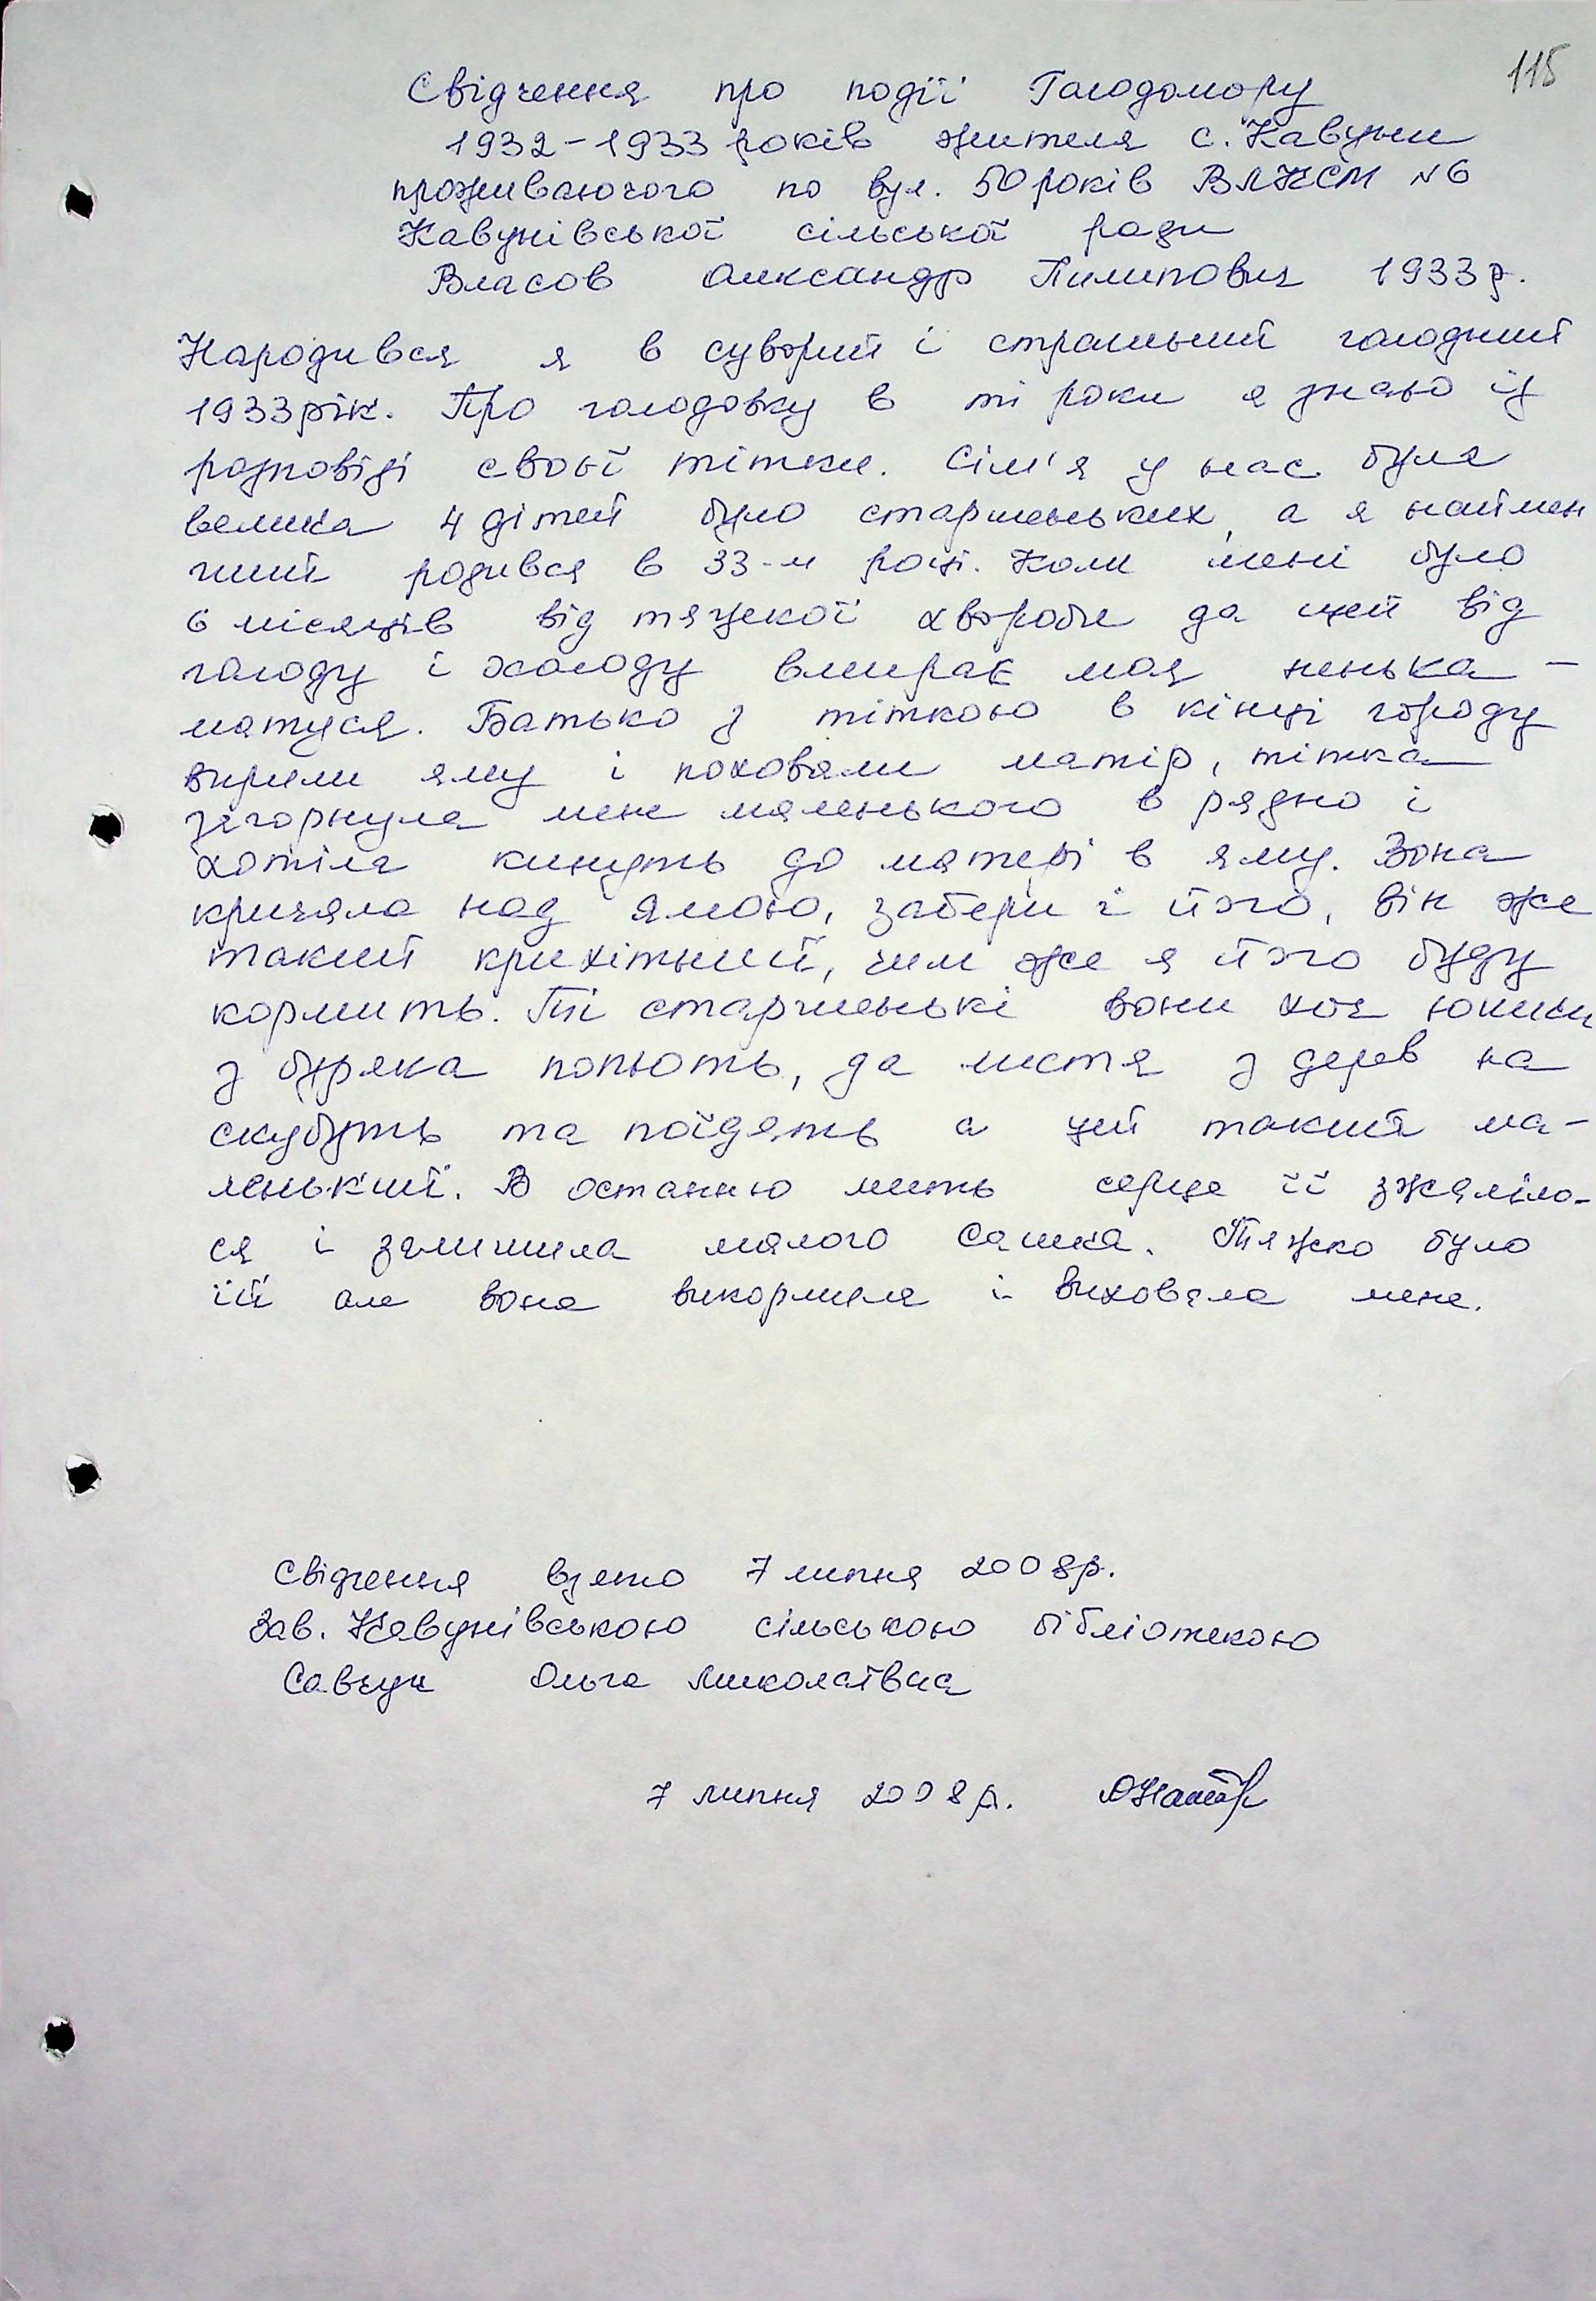 115
Свідчення про події Голодомору
1932-1933 років жителя с. Кавуни
проживаючого по вул. 50 років ВЛКСМ №6
Кавунівської сільської ради
Власов Олександр Пилипович 1933 р.
Народився я в суворий і страшний голодний
1933 рік. Про голодовку в ті роки я знаю із
розповіді своєї тітки. Сім'я у нас була
велика 4 дітей було старшеньких, а я наймен
ший родився в 33-м році. Коли мені було
6 місяців від тяжкої хвороби да щей від
голоду і холоду вмирає моя ненька-
матуся. Батько з тіткою в кінці городу
вирили яму і поховали матір, тітка
загорнула мене маленького в рядно і
хотіла кинуть до матері в яму. Вона
кричала над ямою, забери і його, він же
такий крихітний, чим же я його буду
кормить. Ті старшенькі вони хоч юшки
з буряка попють, да листя з дерев на
скубуть та поїдять а цей такий ма-
ленький. В останню мить серце її зжаліло-
ся і залишила малого Сашка. Тяжко було
їй але вона викормила і виховала мене.
Свідчення взято 7 липня 2008р.
Зав. Кавунівською сільською бібліотекою
Савчук Ольга Миколаївна
7 липня 2008 р.